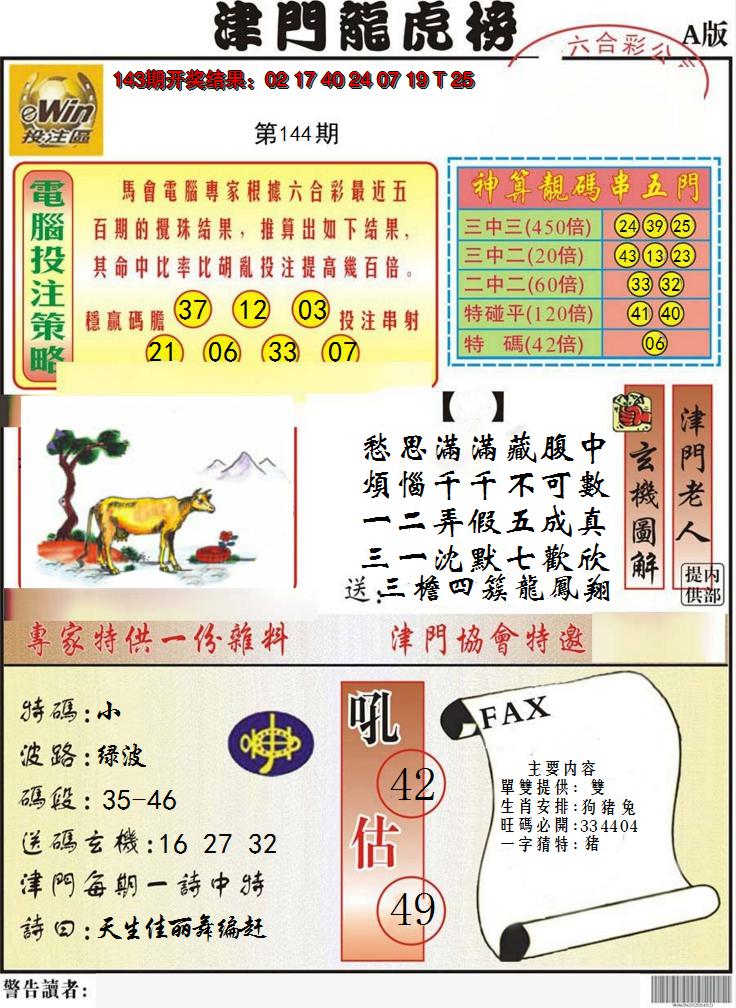 津門龍虎榜
A版
六合彩公
143期开奖结果：02 17 40 24 07 19 T 25
eWin
投注區
第144期
電腦投注策略
馬會電腦專家根據六合彩最近五
百期的攪珠結果，推算出如下結果，
其命中比率比胡亂投注提高幾百倍。
穩贏碼膽 37 12 03 投注串射
21 06 33 07
神算靚码串五門
三中三(450倍) 24 39 25
三中二(20倍) 43 13 23
二中二(60倍) 33 32
特碰平(120倍) 41 40
特 碼(42倍) 06
【 】
愁思滿滿藏腹中
煩惱千千不可數
一二弄假五成真
三一沈默七歡欣
送：三檐四簇龍鳳翔
玄機圖解
津門老人
内部提供
專家特供一份雜料
津門協會特邀
特碼：小
波路：绿波
碼段：35-46
送碼玄機：16 27 32
津門每期一詩中特
詩曰：天生佳丽舞编赶
吼
42
估
49
FAX
主要内容
單雙提供：雙
生肖安排：狗猪兔
旺碼必開：334404
一字猜特：猪
警告讀者：